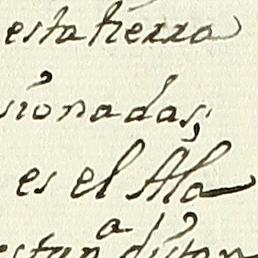 esta tierra
sionadas;
es el Ala
estan distan